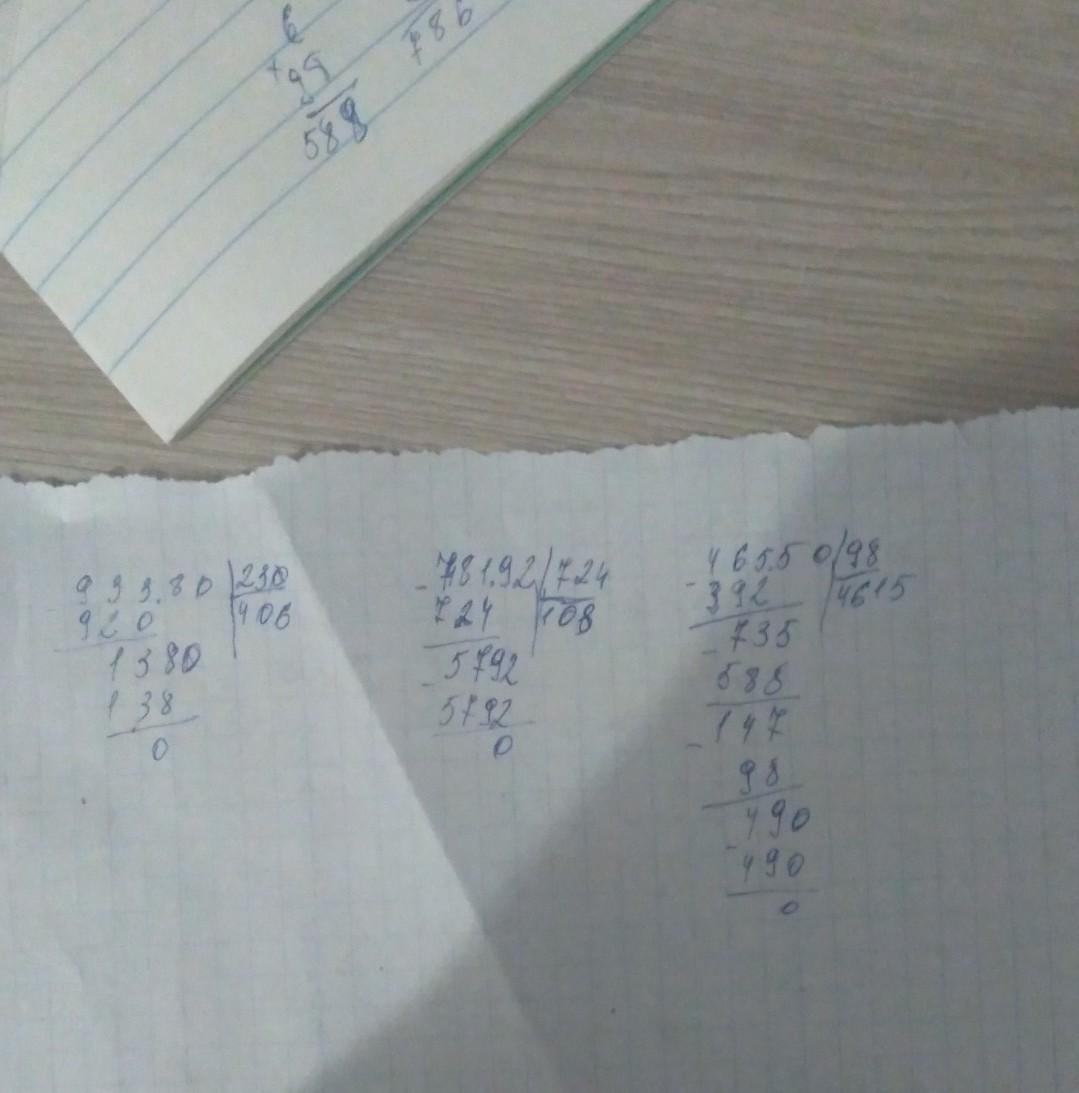 6
+ 99
588
786
933.80 | 230
920 | 406
1380
138
0
- 781.92 | 724
724 | 108
- 5792
5792
0
- 465.50 | 98
392 | 4615
- 735
588
- 147
98
- 490
490
0